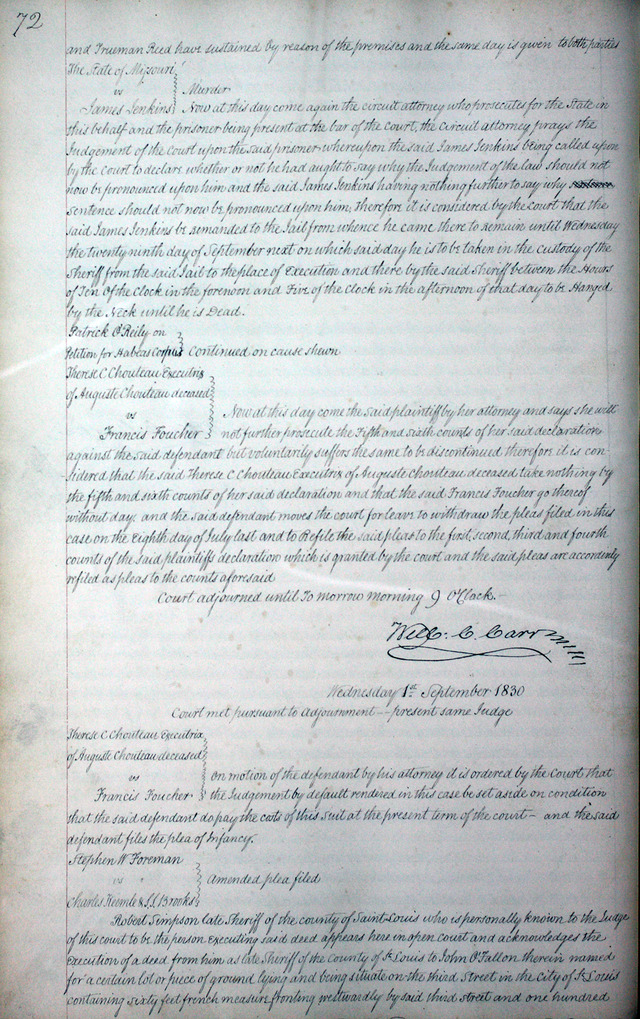 72
and Trueman Reed have sustained by reason of the premises and the same day is given to both parties
The State of Missouri
vs Murder
James Jenkins Now at this day come again the circuit attorney who prosecutes for the State in
this behalf and the prisoner being present at the bar of the Court, the circuit attorney prays the
Judgement of the Court upon the said prisoner whereupon the said James Jenkins being called upon
by the court to declare whether or not he had aught to say why the Judgement of the law should not
now be pronounced upon him and the said James Jenkins having nothing further to say why
Sentence should not now be pronounced upon him, Therefore it is considered by the Court that the
said James Jenkins be remanded to the Jail from whence he came there to remain until Wednesday
the twenty ninth day of September next on which said day he is to be taken in the custody of the
Sheriff from the said Jail to the place of Execution and there by the said Sheriff between the Hours
of Ten Of the Clock in the forenoon and Five of the Clock in the afternoon of that day to be Hanged
by the Neck until he is Dead.
Patrick O'Reily on
Petition for Habeas Corpus Continued on cause shewn
Therese C Chouteau Executrix
of Auguste Chouteau deceased
vs Now at this day come the said plaintiff by her attorney and says she will
Francis Foucher not further prosecute the Fifth and sixth counts of her said declaration
against the said defendant but voluntarily suffers the same to be discontinued therefore it is con-
sidered that the said Therese C Chouteau Executrix of Auguste Chouteau deceased take nothing by
the fifth and sixth counts of her said declaration and that the said Francis Foucher go thereof
without day. and the said defendant moves the court for leave to withdraw the pleas filed in this
case on the Eighth day of July last and to Refile the said pleas to the first, second, third and fourth
counts of the said plaintiffs declaration which is granted by the court and the said pleas are accordenly
refiled as pleas to the counts aforesaid
Court adjourned until To morrow morning 9 O'Clock.-
Will: C. Carr
Wednesday 1st September 1830
Court met pursuant to adjournment -- present same Judge
Therese C Chouteau Executrix
of Auguste Chouteau deceased
vs on motion of the defendant by his attorney it is ordered by the Court that
Francis Foucher the Judgement by default rendered in this case be set aside on condition
that the said defendant do pay the costs of this suit at the present term of the court - and the said
defendant files the plea of Infancy.
Stephen W Foreman
vs Amended plea filed
Charles Keemle & S. Brooks
Robert Simpson late Sheriff of the county of Saint Louis who is personally known to the Judge
of this court to be the person Executing said deed appears here in open court and acknowledges the
Execution of a deed from him as late Sheriff of the County of St Louis to John O'Fallon therein named
for a certain lot or piece of ground lying and being situate on the third Street in the City of St Louis
containing sixty feet french measure fronting westwardly by said third Street and one hundred